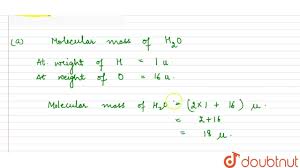 (a) Molecular mass of H₂O
At. weight of H = 1 u
At weight of O = 16 u.
Molecular mass of H₂O = (2×1 + 16) u.
= 2+16
= 18 u.
doubtnut